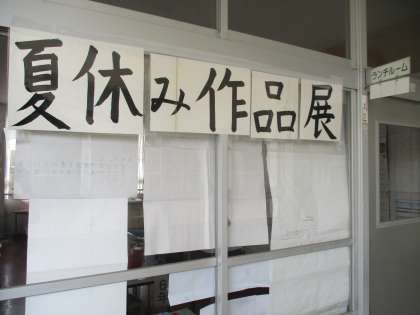 夏休み作品展
ランチルーム